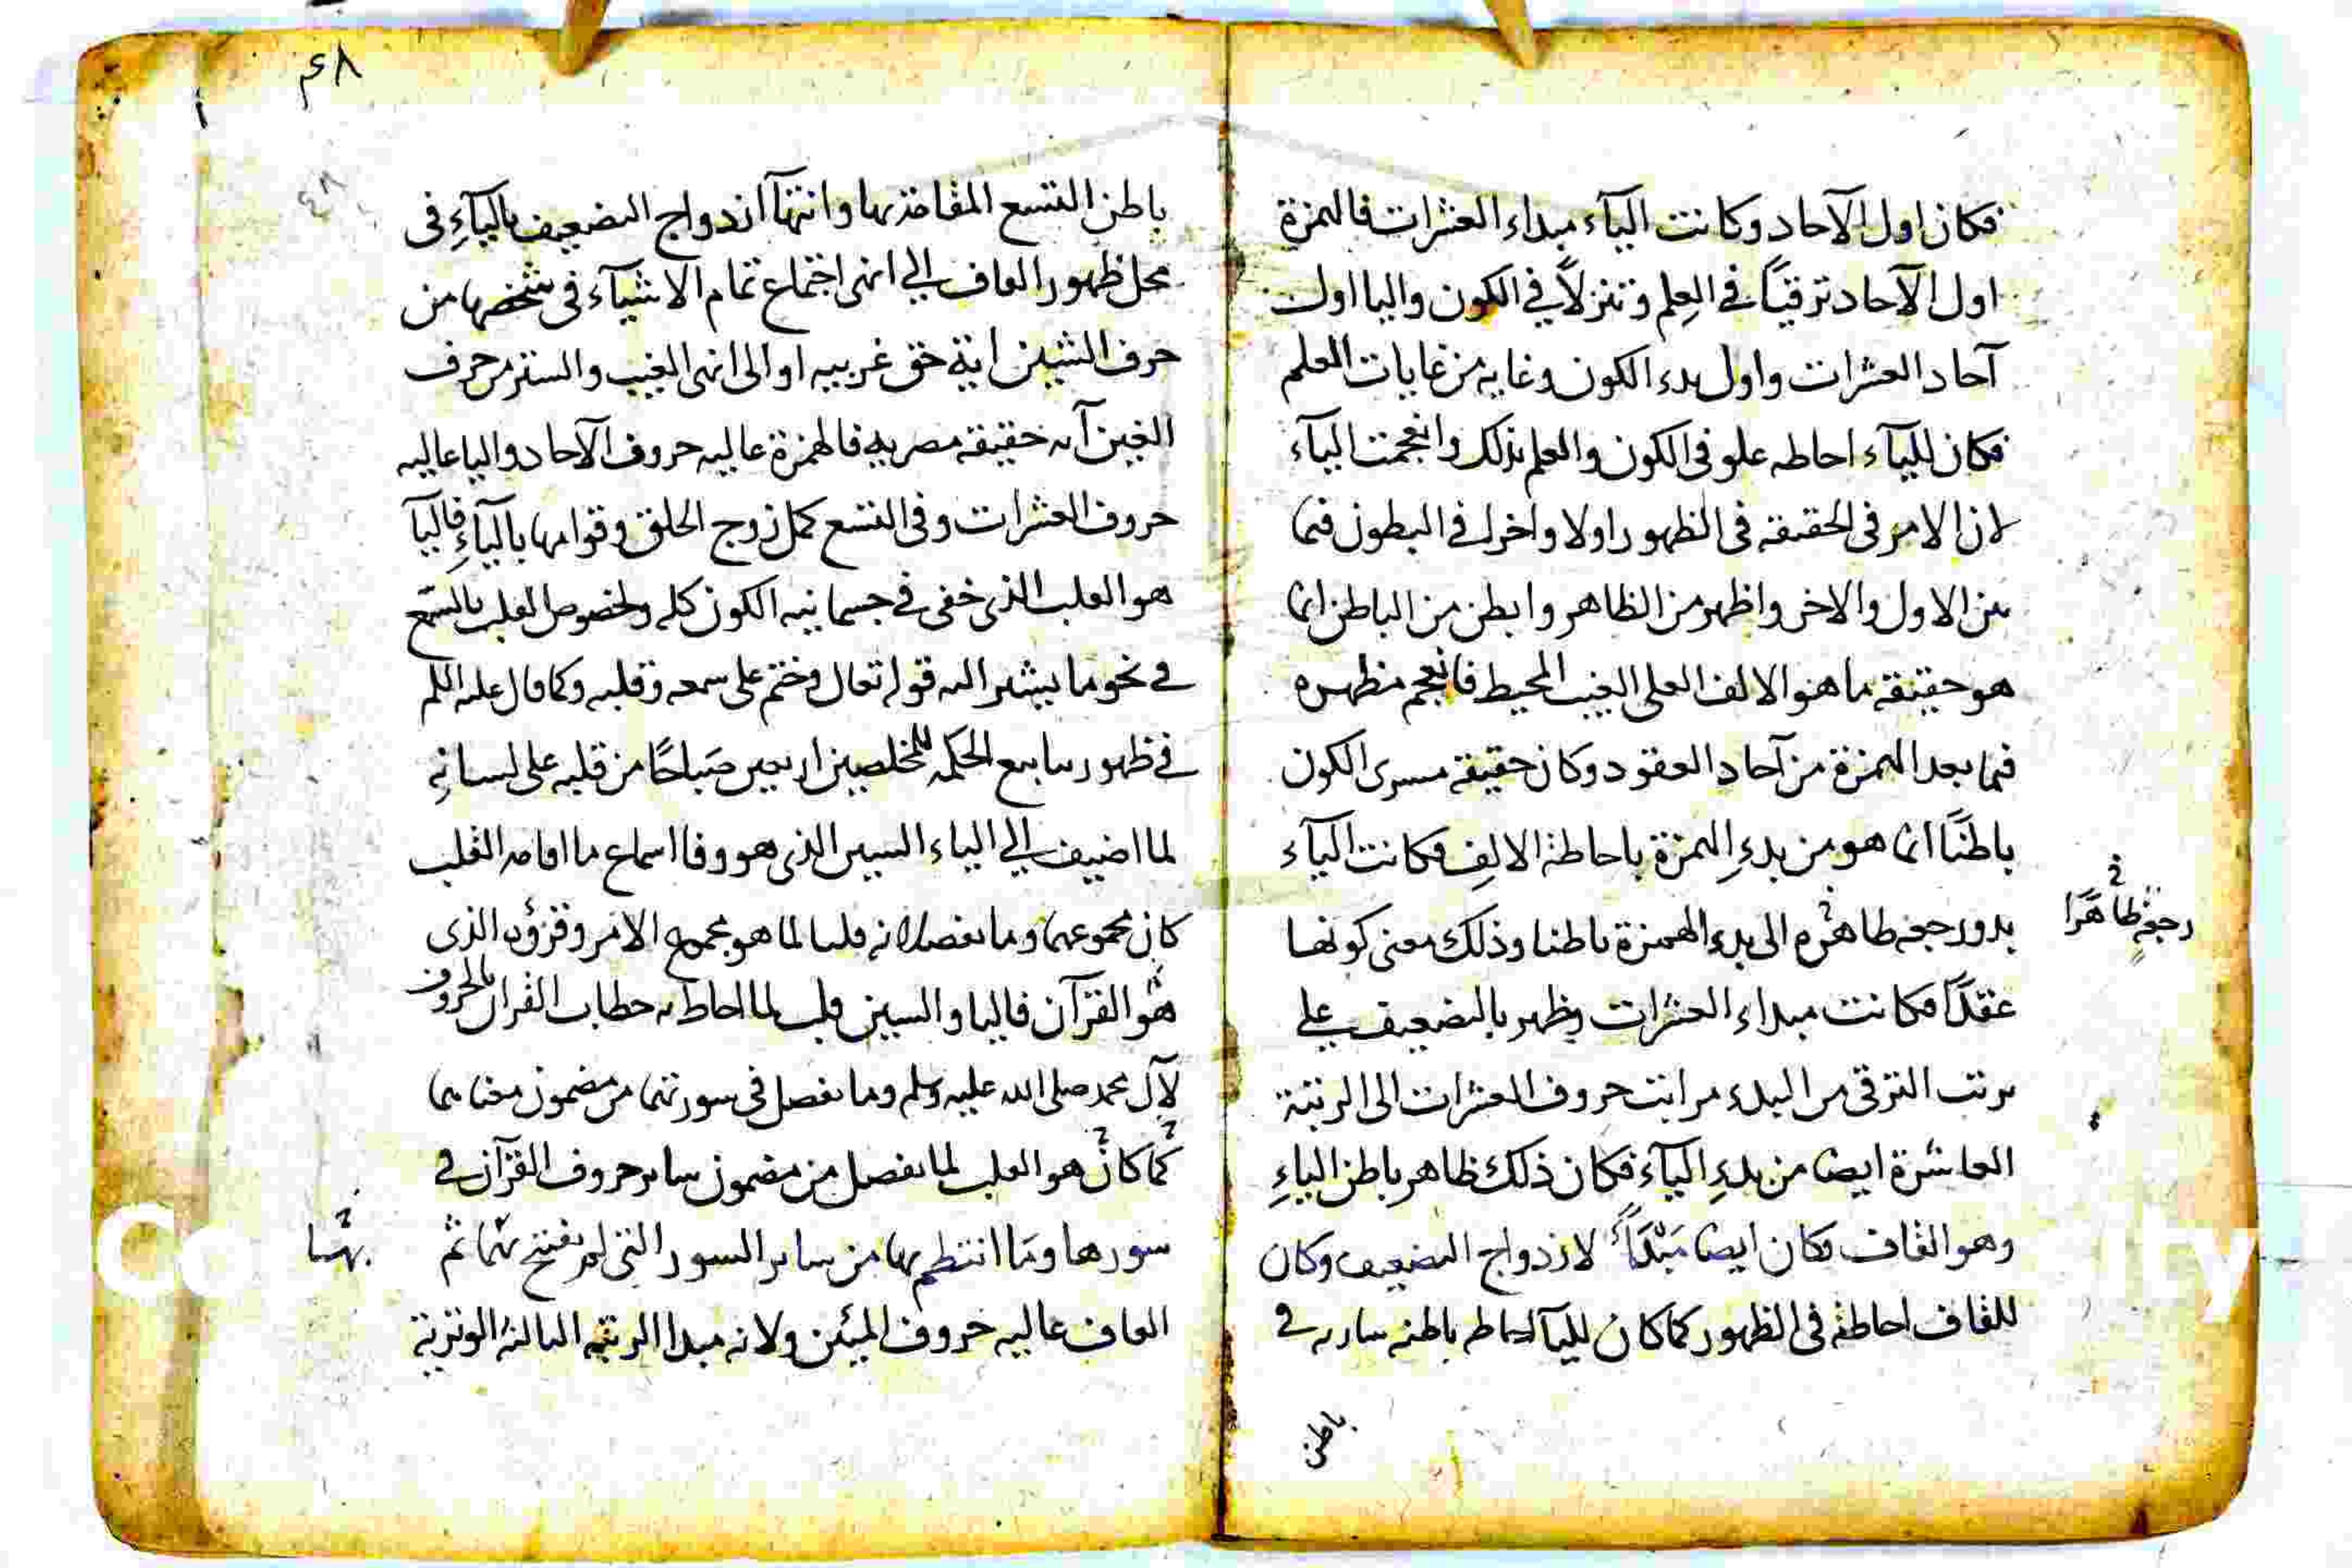 فكان اول الآحاد وكانت اليآء مبداء العشرات فالهمزة
اول الآحاد ترقيًا في العِلم وتنزلاً في الكون واليا اول
آحاد العشرات واول بدء الكون وغايه من غايات العلم
فكان لليآء احاطه علو في الكون والعلم بذلك وانعجمت اليآء
لان الامر في الحقيقه في الظهور اولا واخرا وفي البطون فيما
بين الاول والاخر واظهر من الظاهر وابطن من الباطن انما
هو حقيقه ما هو الالف العلى الغيب المحيط فانعجم مظهره
فيما بعد الهمزة من آحاد العقود وكان حقيقة مسرى الكون
باطنًا انما هو من بدءِ الهمزة باحاطة الالِف فكانت اليآء
بدو رجعه ظاهره الى بدء الهمزة باطنا وذلك معنى كونها
رجعةٍ ظاهرًا
عقدًا فكانت مبداء العشرات وظهر بالتضعيف على
ترتب الترقى من البدء مراتب حروف العشرات الى الرتبة
العاشرة ايضا من بدءِ اليآء فكان ذلك ظاهر باطن الياءِ
وهو القاف فكان ايضا مَبْدَاً لازدواج التضعيف وكان
للقاف احاطة في الظهور كما كان لليآ احاطه باطنه ساريه في
باطن
٤٨
٤٨
باطن التسع المقامة بها وانتهآ ازدواج التضعيف باليآءِ في
محل ظهور القاف الى انهى اجتماع تمام الاشيآء في شخصها من
حرف الشين اية حق غربيه او الى انهى الغيب والستر من حرف
الغين آيه حقيقة مصريه فالهمزة عاليه حروف الآحاد واليا عاليه
حروف العشرات وفي التسع كمل زوج الخلق وقوامها باليآءِ فاليآ
هو القلب الذي خفى في جسمانيه الكون كله ولخصوص القلب بالسّمع
في نحو ما يشير اليه قوله تعالى وختم على سمعه وقلبه وكما قال عليه السلم
في ظهور ينابيع الحكمه للمخلصين اربعين صَباحًا من قلبه على لسانهِ
لما اضيف الى الياء السين الذي هو وفا اسماع ما اقامه القلب
كان مجموعهما وما تفصلا به قلبا لما هو مجموع الامر وقرؤه الذي
هو القرآن فاليا والسين قلب لما احاط به خطاب القرآن بالحروف
لآل محمد صلى الله عليه وسلم وما تفصل في سورتهما من مضمون معناهما
كما كان هو القلب لما تفصل من مضمون ساير حروف القرآن في
سورها وما انتظم بها من ساير السور التي لم تفتتح بهما ثم
بهـا
القاف عاليه حروف المئين ولانه مبدا الرتبه الثالثة الوترية